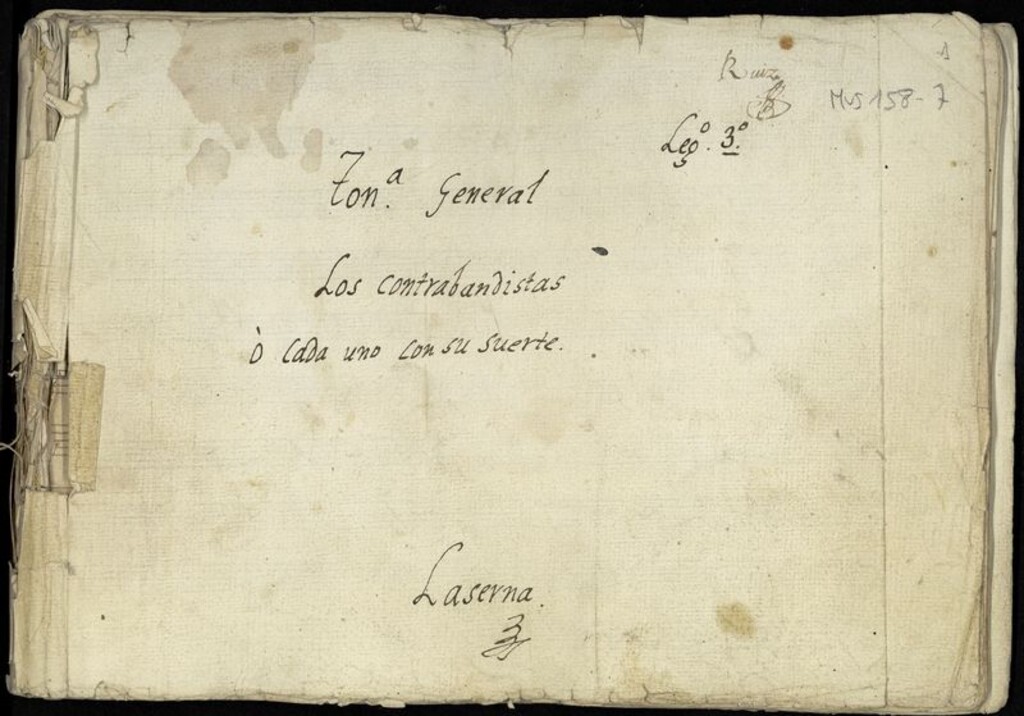 1
Ruiz
Mus 158-7
Legº. 3º.
Tonª. General
Los contrabandistas
ò cada uno con su suerte.
Laserna.